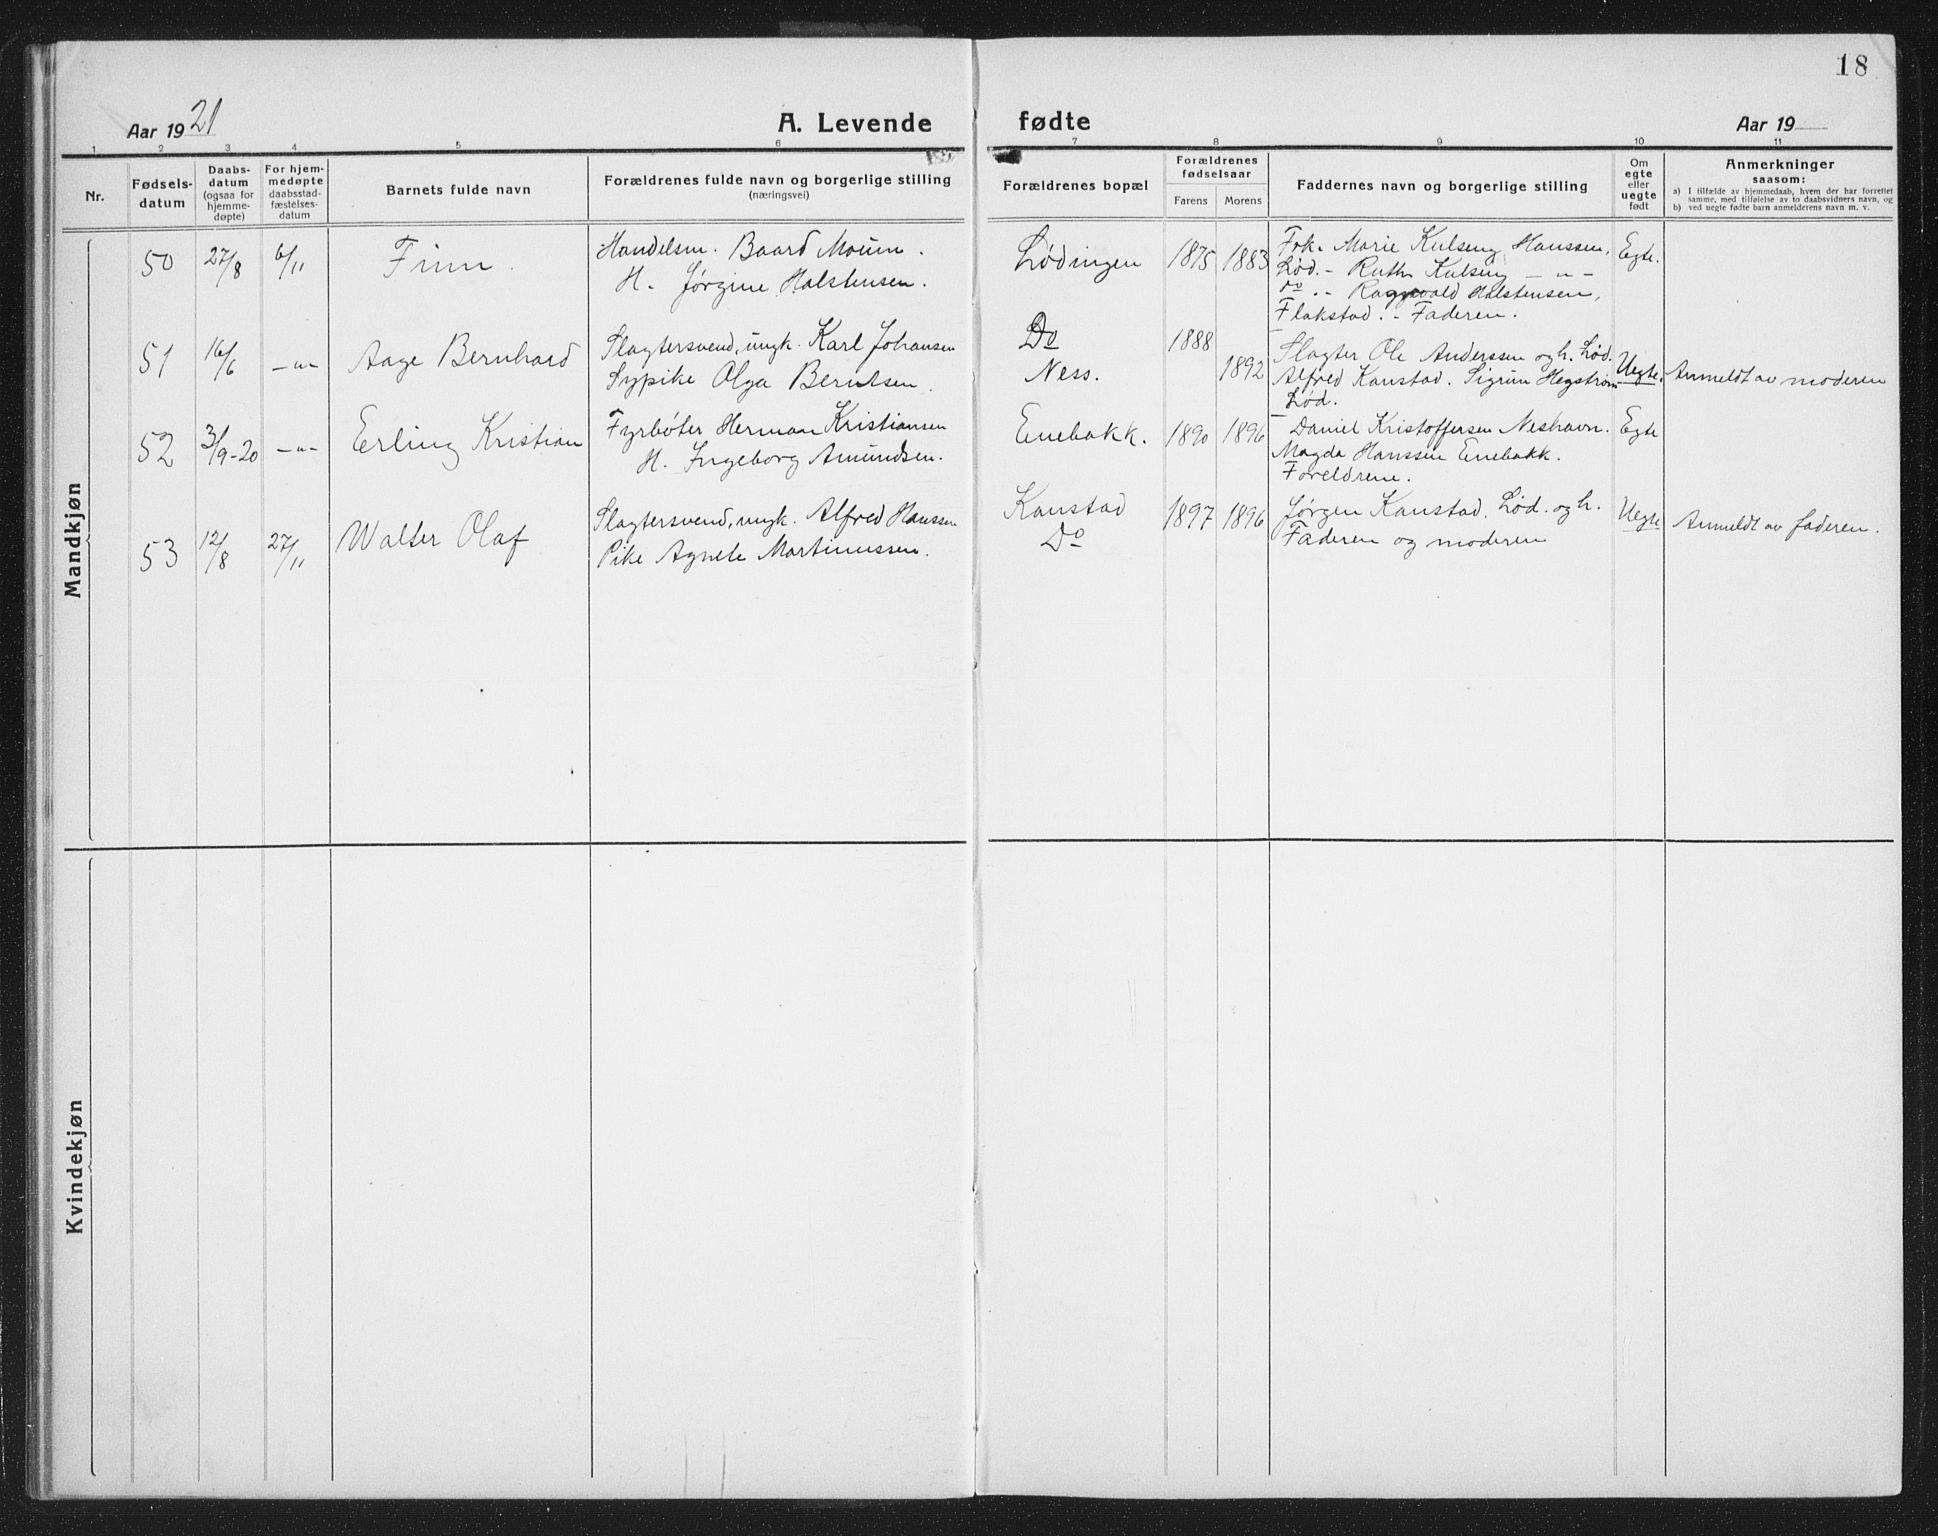 18
Aar 1921
A. Levende
fødte
Aar 19
1 2 3 4 5 6 7 8 9 10 11
Nr.
Fødsels-
datum
Daabs-
datum
(ogsaa for
hjemme-
døpte)
For hjem-
medøpte
daabsstad-
fæstelses-
datum
Barnets fulde navn
Forældrenes fulde navn og borgerlige stilling
(næringsvei)
Forældrenes bopæl
Forældrenes
fødselsaar
Farens Morens
Faddernes navn og borgerlige stilling
Om
egte
eller
uegte
født
Anmerkninger
saasom:
a) I tilfælde av hjemmedaab, hvem der har forrettet
samme, med tilføielse av to daabsvidners navn, og
b) ved uegte fødte barn anmelderens navn m. v.
Mandkjøn
50 27/8 6/11 Finn. Handelsm. Baard Moum. Lødingen 1875 1883 Frk. Marie Kulseng Hanssen, Egte.
H. Jørgine Halstensen. Lød. - Ruth Kulseng - " -
do .. - Ragnvald Halstensen,
Flakstad. - Faderen.
51 16/6 - " - Aage Bernhard Slagtersvend, ungk. Karl Johansen Do 1888 Slagter Ole Anderssen og h. Lød. Uegte. Anmeldt av moderen
Sypike Olga Berntsen. Ness. 1892 Alfred Kanstad. Sigrun Hegstrøm
Lød.
52 3/9-20 - " - Erling Kristian Fyrbøter Herman Kristiansen Enebakk. 1890 1896 Daniel Kristoffersen Neshavn. Egte
H. Ingeborg Amundsen. Magda Hanssen Enebakk.
Foreldrene.
53 12/8 27/11 Walter Olaf Slagtersvend, ungk. Alfred Hanssen Kanstad 1897 1896 Jørgen Kanstad, Lød. og h. Uegte Anmeldt av faderen.
Pike Agnete Martinussen. Do Faderen og moderen
Kvindekjøn